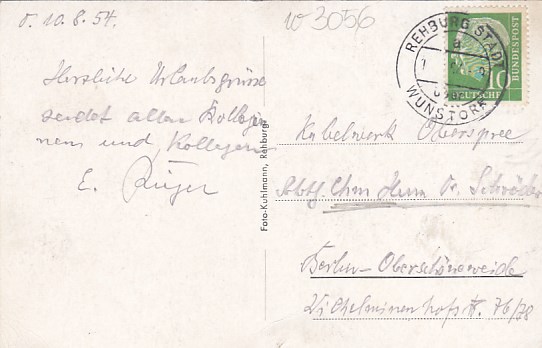 d. 10.8.54.
w 3056
Herzliche Urlaubsgrüsse
sendet allen Kollegin-
nen und Kollegen
E. Krüger
Foto-Kuhlmann, Rehburg
REHBURG STADT
a
WUNSTORF
DEUTSCHE
BUNDESPOST
10
Kabelwerk Oberspree
Abtlg. Chem Herrn Dr. Schröder
Berlin-Oberschöneweide
Wilhelminenhofstr. 76/78